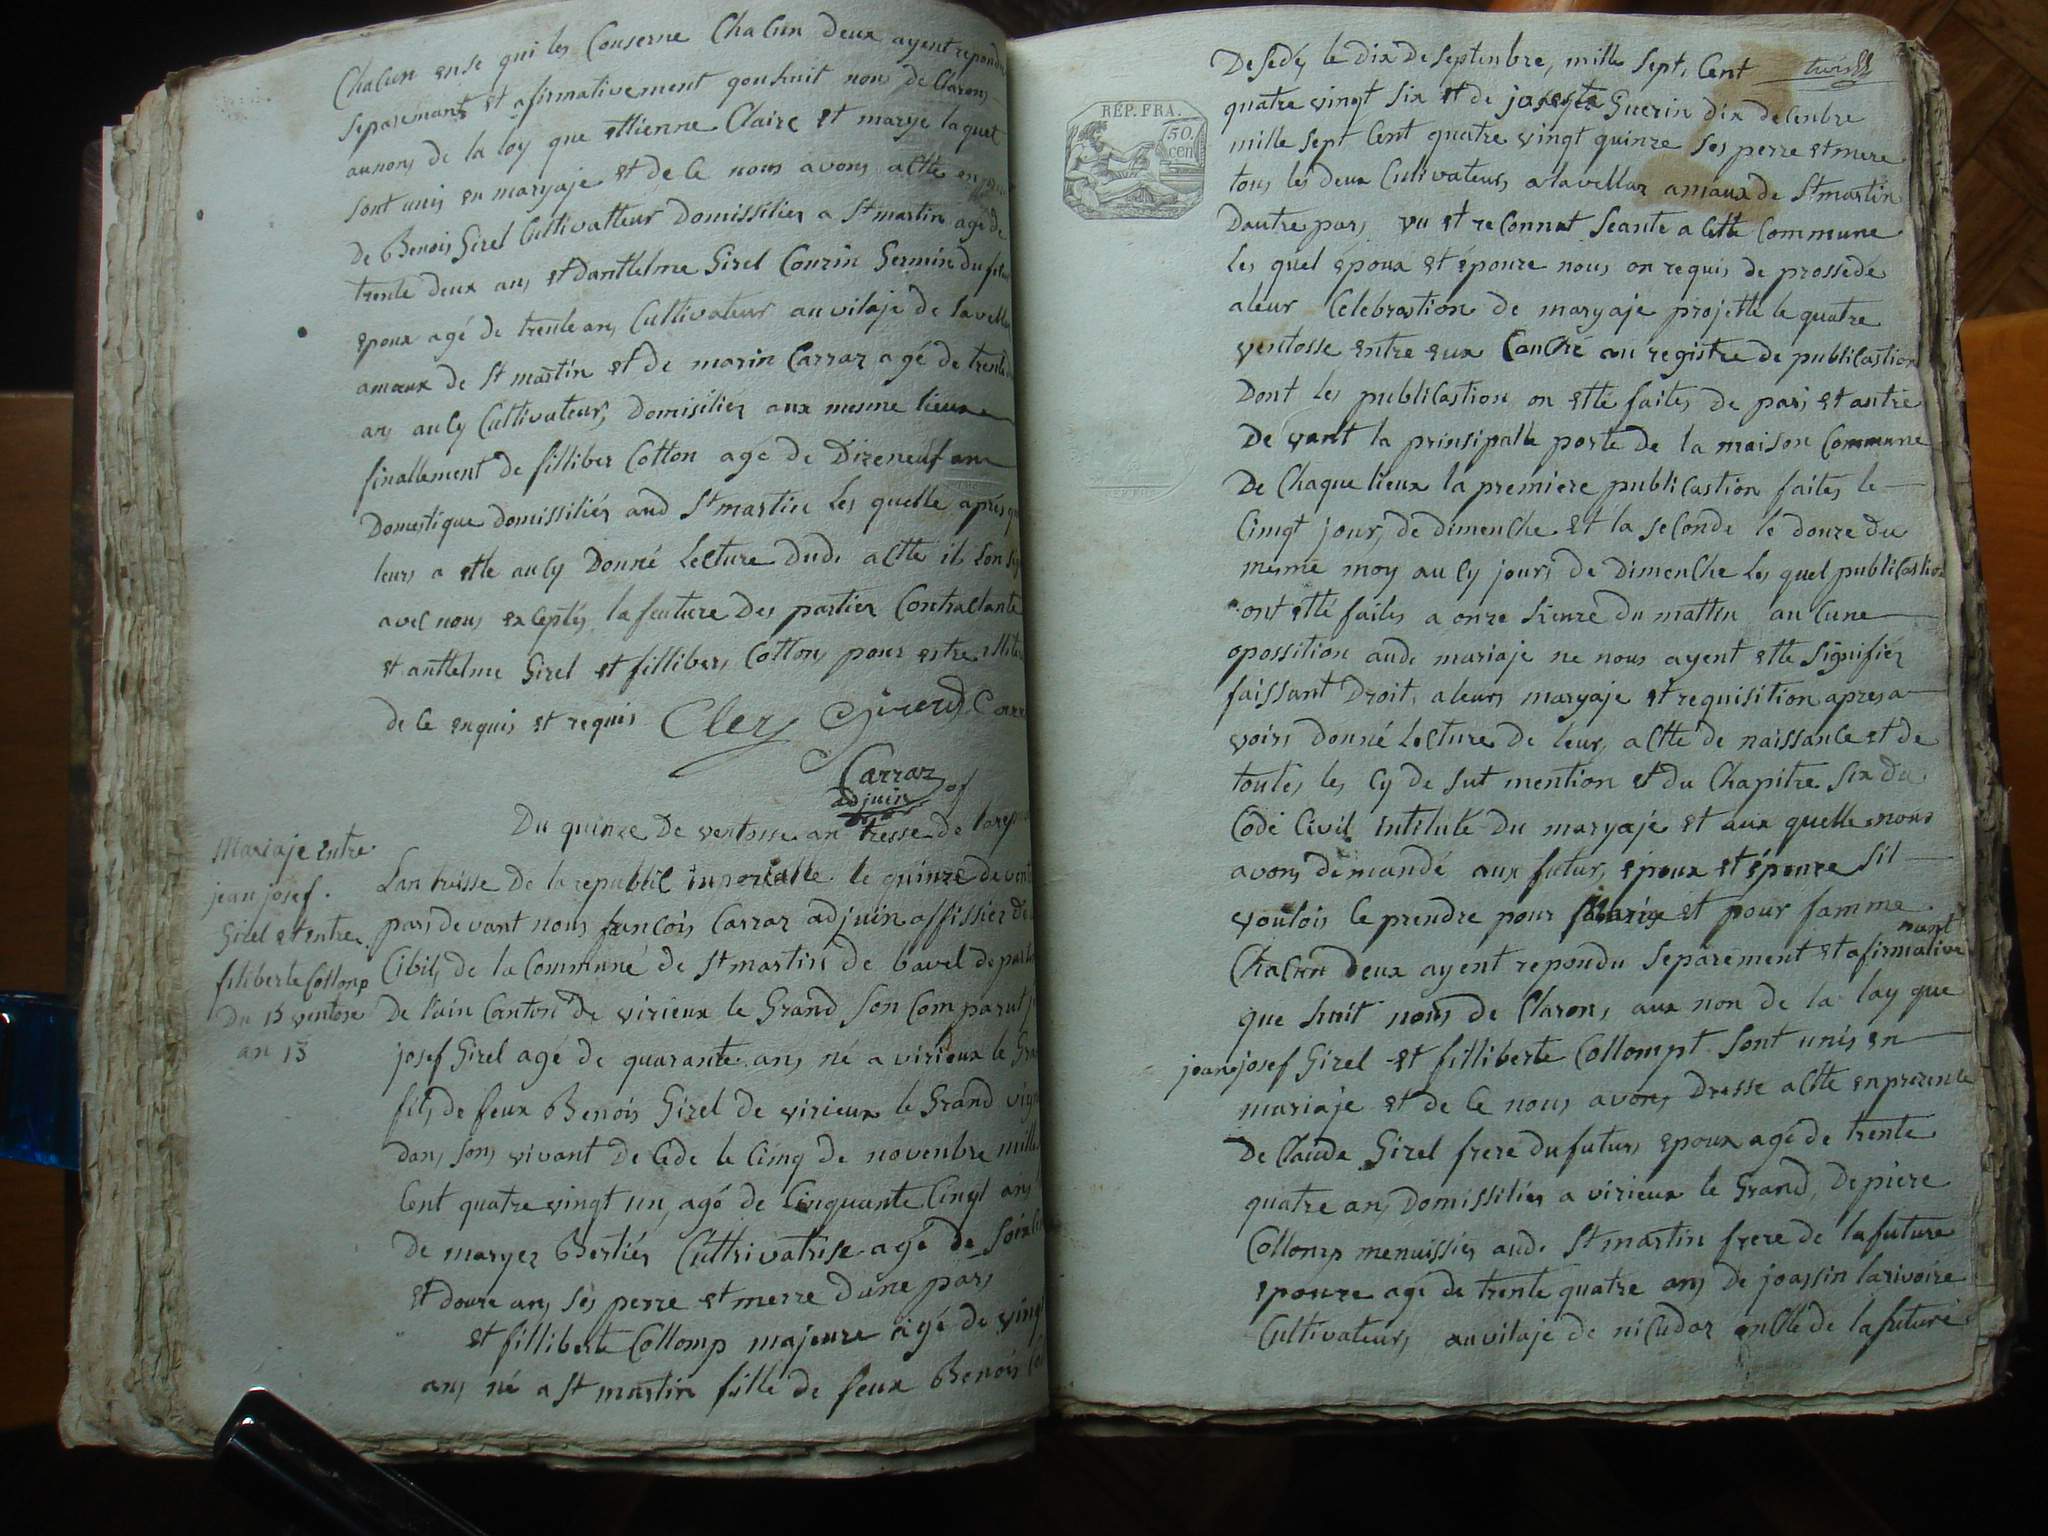 Chacun ense qui les Conserne Chacun deux ayent repondu
separemant et afirmativement qouhuit nous de Clarons
aunons de la loy que ettienne Claire et marye laquet
sont unis en maryaje et de Ce nous avons actte en
de Benois Girel Cultivatteur Domissilier a St martin agé de
trente deux ans et danthelme Girel Couzin Germin du futur
epoux agé de trente ans Cultivateur au vilaje de lavell
amaux de St martin et de marin Carraz agé de trente
ans aucy Cultivateur, domisiliez aux mesme lieux
finallement de filliber Cotton age de Dizeneuf ans
Domestique domissiliés aud St martin Les quelle aprés
leurs a ette aucy Donné Lecture dud. actte ils son
avec nous exceptés la feuture Des partier Contractante
et anthelme Girel et filliber Cotton pour estre
de Ce enquis et requis Clerz Girerd Carr
Carraz
adjuin
of
Du quinze De ventosse an tresse de la rep
Mariaje entre
jean josef.
Girel et entre
filiberte Collomp
Du 15 ventose
an 13
Lan traisse De la republic inperialle le quinze de vent
par devant nous francois Carraz adjuin offissier de
Cibil, de la Commune de St martin de bavel depar
De l'ain Canton de virieux le Grand Son Comparut j
josef Girel agé de quarante ans né a virieux le Gra
fils de feux Benois Girel de virieux le Grand vig
dans son vivant De Cede le Cimq de novenbre mille
Cent quatre vingt un, agé de Cinquante Cinqt ans
De maryez Bertiér Culttivatrise agé de Soix
et douze ans ses perre et merre dune pars
et filliberte Collomp majeure agé de ving
ans né a St martin fille de feux Benois
REP. FRA.
50.
cen
De sedé, le dix De septenbre, mille sept, Cent
quatre vingt six et de josepte Guerin dix decenbre
mille sept Cent quatre vingt quinze ses perre et mere
tous les deux Cultivateurs a lavellaz amaux de St martin
Dautre pars vu et reConnut Seante a Cette Commune
les quel époux et épouze nous on requis de prossedé
aleur Celebrastion de maryaje projette le quatre
ventosse entre eux Concré au registre de publicastion
Dont les publicastion on etté faites de pars et autre
De vant la prinsipalle porte de la maison Commune
De Chaque lieux la premiere publicastion faites le
Cimqt jour, de dimenche et la seconde le douze du
meme moy aucy jours de Dimenche Les quel publicastion
ont etté failes a onze hieure du mattin aucune
opossition aud. mariaje ne nous ayent ette signifiér
faissant Droit, aleurs maryaje et requisition apres a
voirs donné Lecture de leur, actte de naissance et de
toutes les Cy de sut mention et du Chapitre six du
Code Civil intitulé Du maryaje et aux quelle nous
avons demandé aux futur, époux et épouze sil
voulois le prendre pour marie et pour famme
Chacun deux ayent repondu separement et afirmative
mant
que huit nous de Clarons aux non de la lay que
jean josef Girel et filliberte Collompt Sont unis en
mariaje et de Ce nous avons Dresse actte enprezence
De Claude Girel frere du futurs epoux agé de trente
quatre ans Domissiliér a virieux le Grand, De piere
Collomp menuissier aud. St martin frere de la future
epouze agé de trente quatre ans de joassin larivoire
Cultivateurs au vilaje de nicudaz oncle de la future